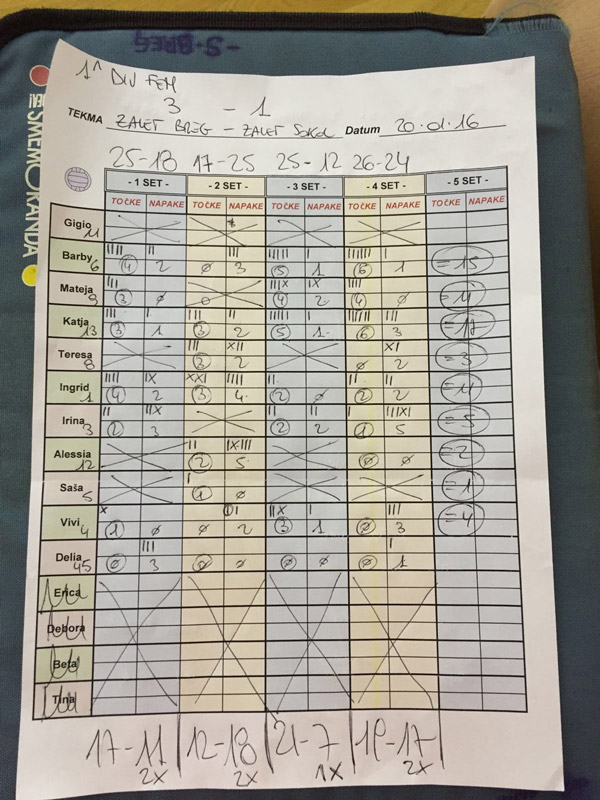 S-BREG
SMEMORANDA
1^ DIV FEM
3 - 1
TEKMA ZALET BREG - ZALET SOKOL Datum 20.01.16
25-18 17-25 25-12 26-24
- 1 SET - - 2 SET - - 3 SET - - 4 SET - - 5 SET -
TOČKE NAPAKE TOČKE NAPAKE TOČKE NAPAKE TOČKE NAPAKE TOČKE NAPAKE
Gigio 11
Barby 6 4 2 ø 3 5 1 6 1 =15
Mateja 9 3 ø 4 2 4 ø =11
Katja 13 3 1 3 2 5 1 6 3 =17
Teresa 8 3 2 ø 2 =3
Ingrid 1 4 2 3 4 2 ø 2 2 =11
Irina 3 2 3 2 2 1 5 =5
Alessia 12 2 5 ø ø =2
Saša 5 1 ø =1
Vivi 4 1 ø ø 2 3 1 ø 3 =4
Delia 45 ø 3 ø ø ø ø ø 1
Erica
Debora
Beta
Tina
17-11 12-18 21-7 19-17
2x 2x 1x 2x